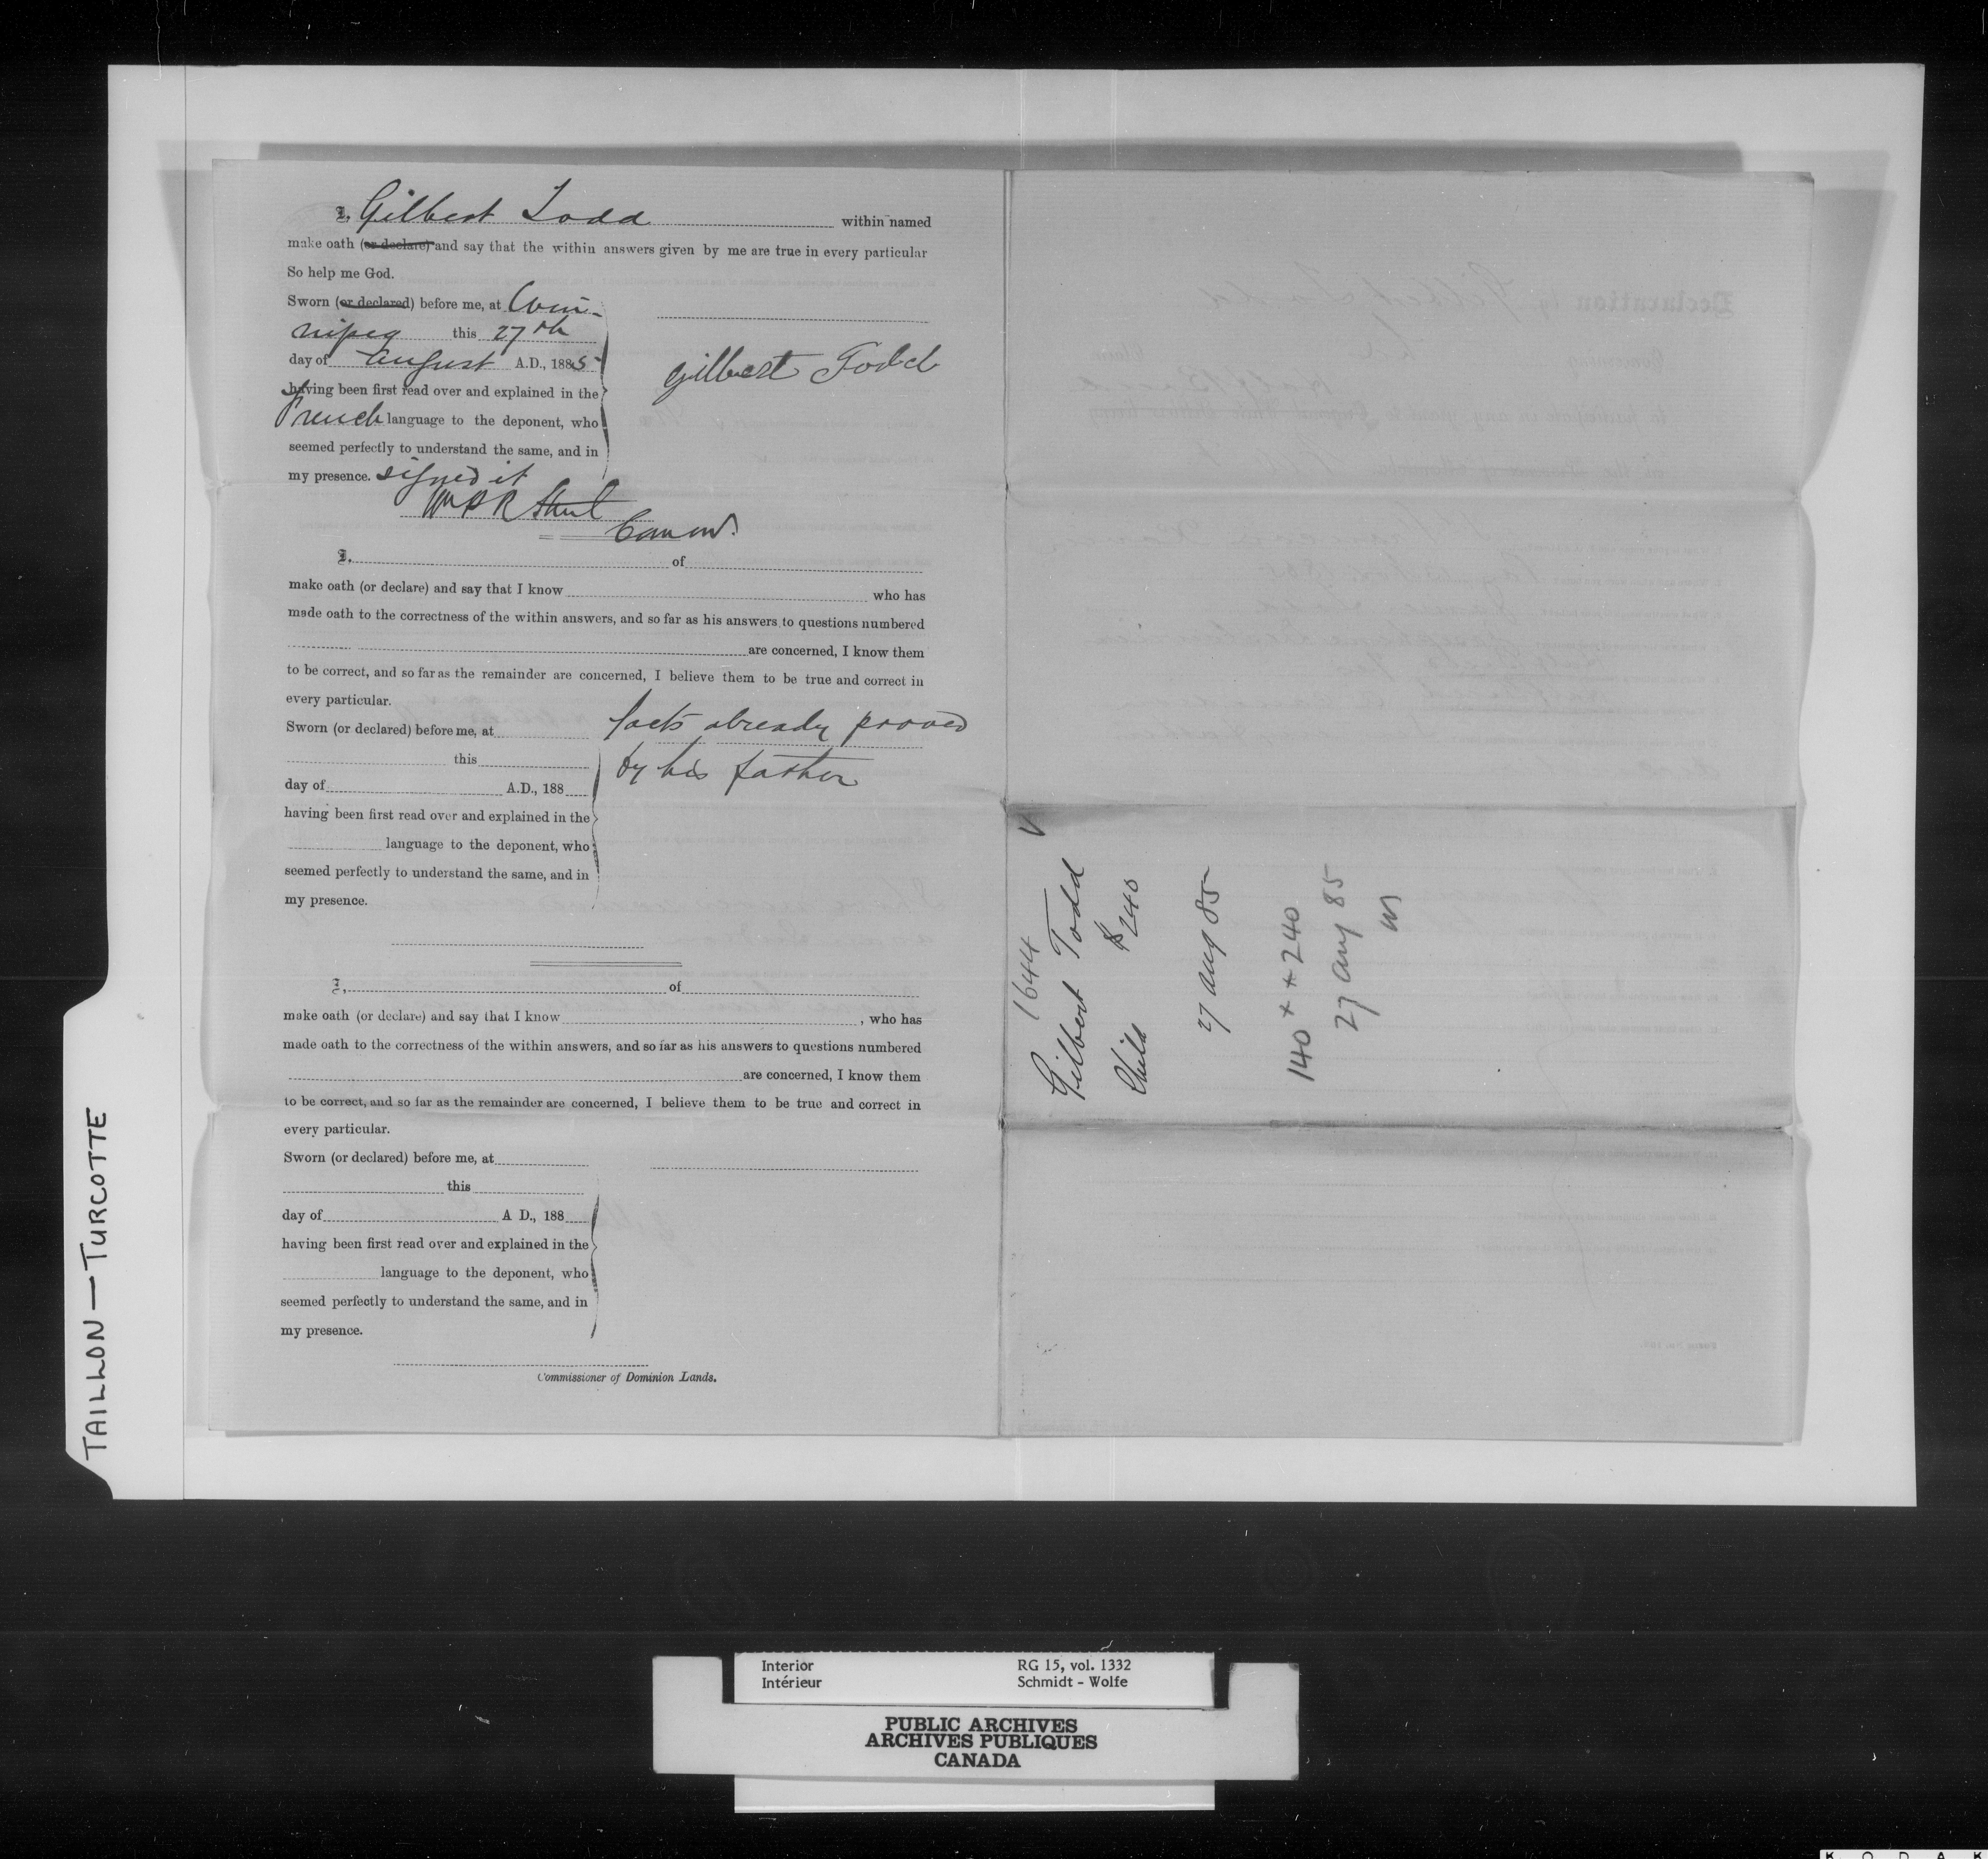 I, Gilbert Todd within named
make oath (or declare) and say that the within answers given by me are true in every particular
So help me God.
Sworn (or declared) before me, at Win-
nipeg this 27th
day of August A.D., 1885
having been first read over and explained in the
French language to the deponent, who
seemed perfectly to understand the same, and in
my presence. signed it
Gilbert Todd
Wm P R Street
Comm.
I, of
make oath (or declare) and say that I know who has
made oath to the correctness of the within answers, and so far as his answers to questions numbered
are concerned, I know them
to be correct, and so far as the remainder are concerned, I believe them to be true and correct in
every particular.
Sworn (or declared) before me, at
this
day of A.D., 188
having been first read over and explained in the
language to the deponent, who
seemed perfectly to understand the same, and in
my presence.
facts already proved
by his father
I, of
make oath (or declare) and say that I know , who has
made oath to the correctness of the within answers, and so far as his answers to questions numbered
are concerned, I know them
to be correct, and so far as the remainder are concerned, I believe them to be true and correct in
every particular.
Sworn (or declared) before me, at
this
day of A D., 188
having been first read over and explained in the
language to the deponent, who
seemed perfectly to understand the same, and in
my presence.
Commissioner of Dominion Lands.
1644
Gilbert Todd
Child $240
27 Aug 85
140 x x 240
27 Aug 85
TAILLON—TURCOTTE
Interior RG 15, vol. 1332
Intérieur Schmidt - Wolfe
PUBLIC ARCHIVES
ARCHIVES PUBLIQUES
CANADA